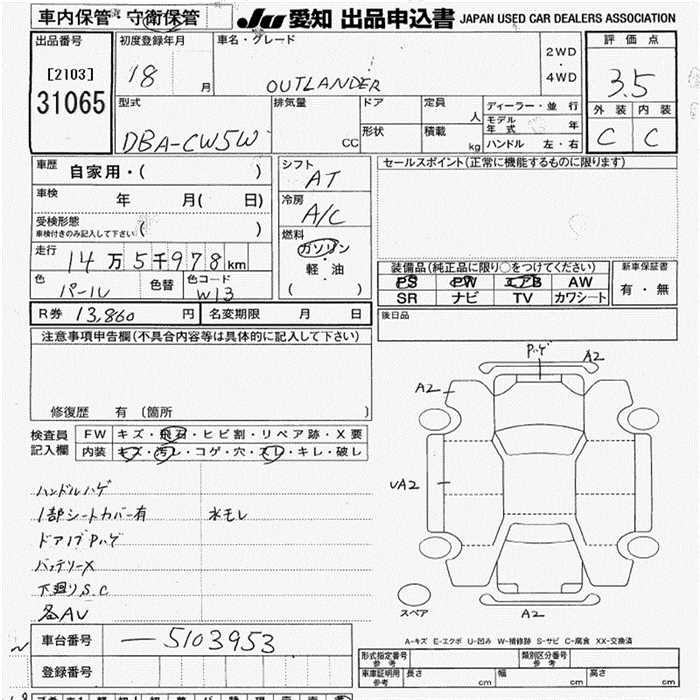 車内保管・守衛保管
JU 愛知 出品申込書 JAPAN USED CAR DEALERS ASSOCIATION
出品番号
[2103]
31065
初度登録年月
18 月
車名・グレード
OUTLANDER
2WD
・
4WD
評価点
3.5
外装 内装
C C
型式
DBA-CW5W
排気量
CC
ドア
形状
定員
人
積載
kg
ディーラー・並行
モデル年式 年
ハンドル 左・右
車歴 自家用・( )
車検 年 月( 日)
受検形態
車検付きのみ記入して下さい ( )
走行 14万5千978km
色 パール 色替 色コード W13
シフト
AT
冷房
A/C
燃料
ガソリン
・
軽・油
( )
セールスポイント(正常に機能するものに限ります)
装備品(純正品に限り○をつけてください)
PS PW エアB AW
SR ナビ TV カワシート
新車保証書
有・無
R券 13,860 円 名変期限 月 日
後日品
注意事項申告欄(不具合内容等は具体的に記入して下さい)
修復歴 有 〔箇所 〕
検査員
記入欄
FW キズ・飛石・ヒビ割・リペア跡・X要
内装 キズ・汚レ・コゲ・穴・スレ・キレ・破レ
ハンドルハゲ
1部シートカバー有 水モレ
ドア1フPハゲ
バッテリーX
下廻りS.C
各AV
Pハゲ
A2
A2
UA2
A2
スペア
A-キズ E-エクボ U-凹み W-補修跡 S-サビ C-腐食 XX-交換済
車台番号 —5103953
登録番号
型式指定番号
参考
類別区分番号
参考
車庫証明用
参考
長さ cm 幅 cm 高さ cm